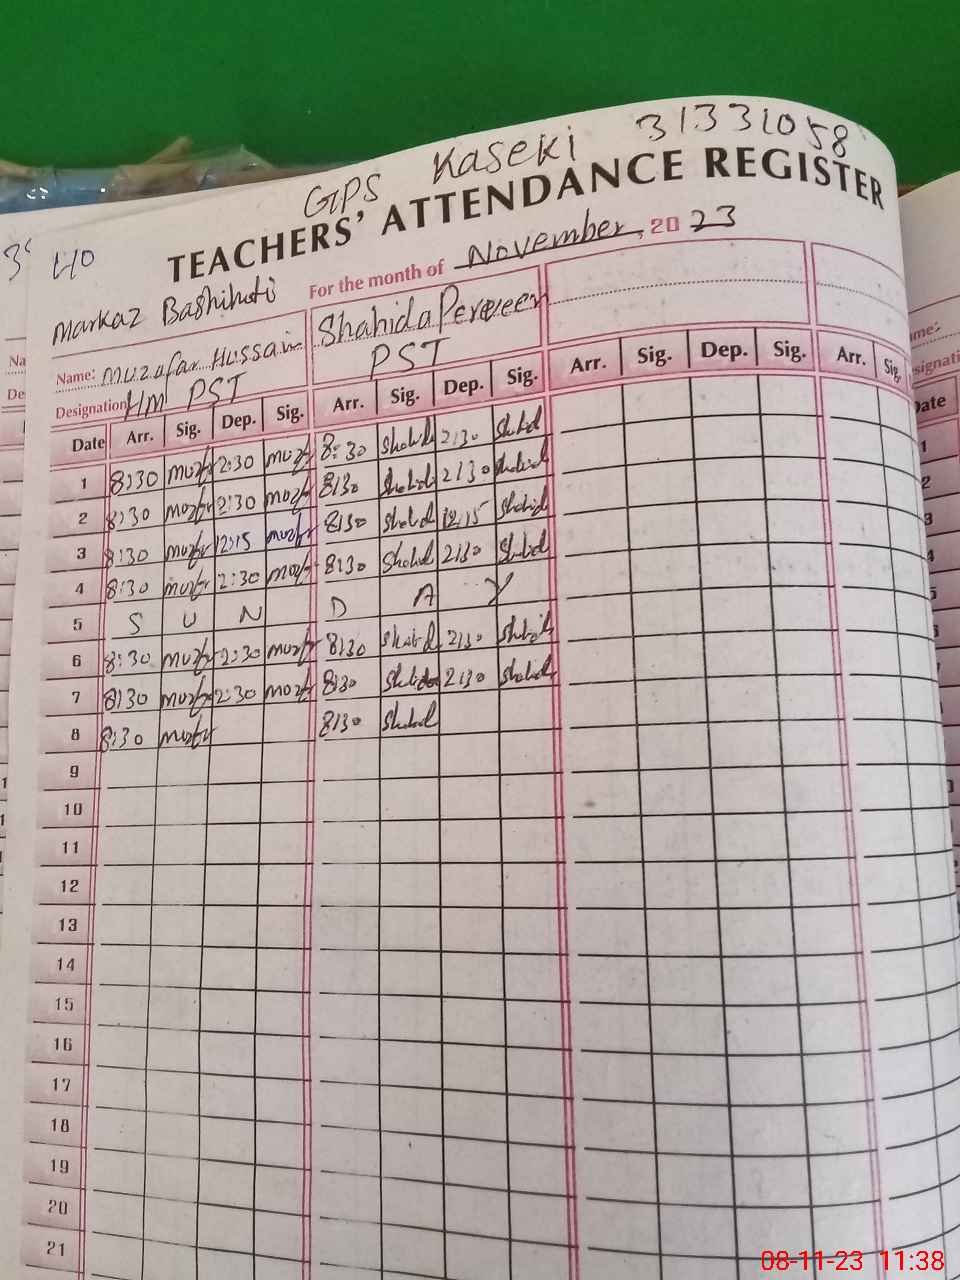 GPS Kaseki 31331058
TEACHERS' ATTENDANCE REGISTER
For the month of November, 2023
Markaz
Name: Muzafar Hussain Shahida Perveen
Designation HM PST PST
Date Arr. Sig. Dep. Sig. Arr. Sig. Dep. Sig. Arr. Sig. Dep. Sig. Arr. Sig.
1 8:30 muzfr 2:30 muzfr 8:30 Shahid 2:30 Shahid
2 8:30 muzfr 2:30 muzfr 8:30 Shahid 2:30 Shahid
3 8:30 muzfr 12:15 muzfr 8:30 Shahid 12:15 Shahid
4 8:30 muzfr 2:30 muzfr 8:30 Shahid 2:30 Shahid
5 S U N D A Y
6 8:30 muzfr 2:30 muzfr 8:30 Shahid 2:30 Shahid
7 8:30 muzfr 2:30 muzfr 8:30 Shahid 2:30 Shahid
8 8:30 muzfr 8:30 Shahid
9
10
11
12
13
14
15
16
17
18
19
20
21
08-11-23 11:38